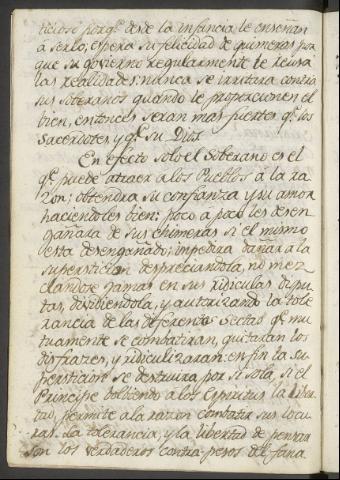 ticioso porq.e desde la infancia le enseñan
a serlo; espera su felicidad de quimeras por
que su govierno regularmente le reusa
las realidades: nunca se irritara contra
sus soberanos quando le proporcionen el
bien, entonces seran mas fuertes q.e los
Sacerdotes, y q.e su Dios
En efecto solo el Soberano es el
q.e puede atraer a los Pueblos à la ra
zon: obtendra su confianza y su amor
haciendoles bien: poco a poco les desen
gañara de sus chimeras si el mismo
esta desengañado; impedira dañar a la
supersticion despreciandola, no mez
clandose jamas en sus ridiculas dispu
tas, dividiendola, y autorizando la tole
rancia de las diferentes Sectas q.e mu
tuamente se combatiran, quitaran los
disfrazes, y ridiculizaran: en fin la su
persticion se destruira por si sola, si el
Principe bolbiendo a los Espiritus la liber
tad, permite a la razon combatir sus locu
ras. La tolerancia, y la libertad de pensar
son los verdaderos contra-pesos del fana